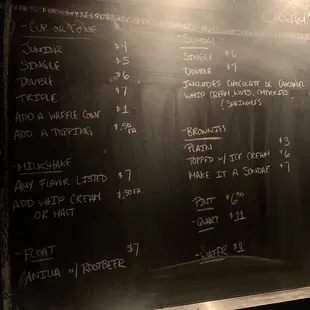 - CUP OR CONE
JUNIOR $4
SINGLE $5
DOUBLE $6
TRIPLE $7
ADD A WAFFLE CONE $1
ADD A TOPPING $.50 EA
- MILKSHAKE
ANY FLAVOR LISTED $7
ADD WHIP CREAM $.50 EA
OR MALT
- FLOAT $7
VANILLA W/ ROOTBEER
- SUNDAE -
SINGLE $6
DOUBLE $7
INCLUDES CHOCOLATE OR CARAMEL
WHIP CREAM, NUTS, CHERRIES
! SPRINKLES
- BROWNIES
PLAIN $3
TOPPED W/ ICE CREAM $6
MAKE IT A SUNDAE $7
- PINT $6.50
- QUART $11
- WATER $1